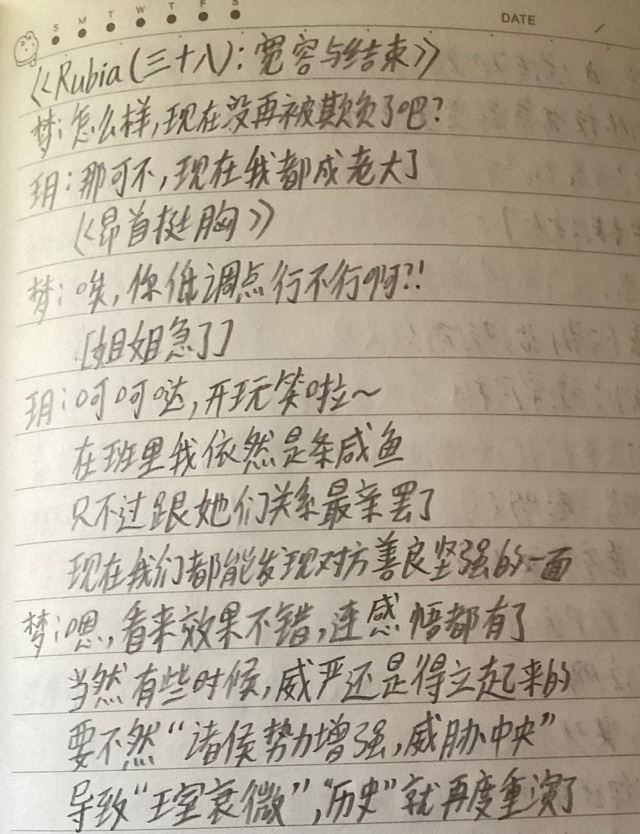 S M T W T F S DATE
《Rubia(三十八):宽容与结束》
梦:怎么样,现在没再被欺负了吧?
玥:那可不,现在我都成老大了
《昂首挺胸》
梦:唉,你低调点行不行啊?!
[姐姐急了]
玥:呵呵哒,开玩笑啦~
在班里我依然是条咸鱼
只不过跟她们关系最亲罢了
现在我们都能发现对方善良坚强的一面
梦:嗯,看来效果不错,连感悟都有了
当然有些时候,威严还是得立起来的
要不然“诸侯势力增强,威胁中央”
导致“王室衰微”,“历史”就再度重演了